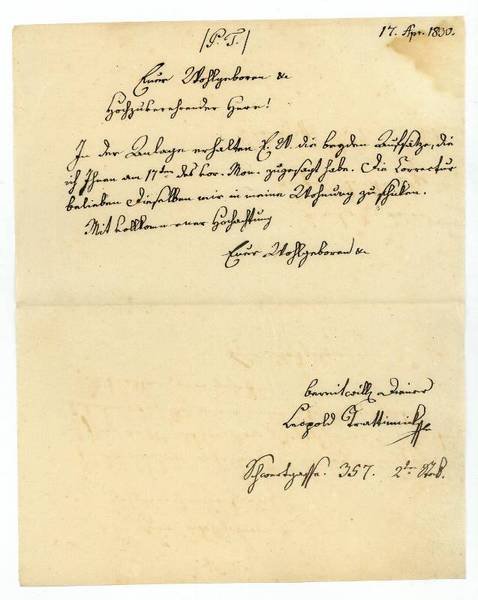 17. Apr. 1830.
/P. T./
Euer Wohlgeboren &c
Hochzuverehrender Herr!
In der Anlage erhalten E. W. die beyden Aufsätze, die
ich Ihnen am 17ten des vor. Mon. zugesagt habe. Die Correctur
belieben Dieselben mir in meine Wohnung zu schicken.
Mit vollkommener Hochachtung
Euer Wohlgeboren &c
bereitwill. Diener
Leopold Trattinnick
Schwertgasse. 357. 2ter Stock.